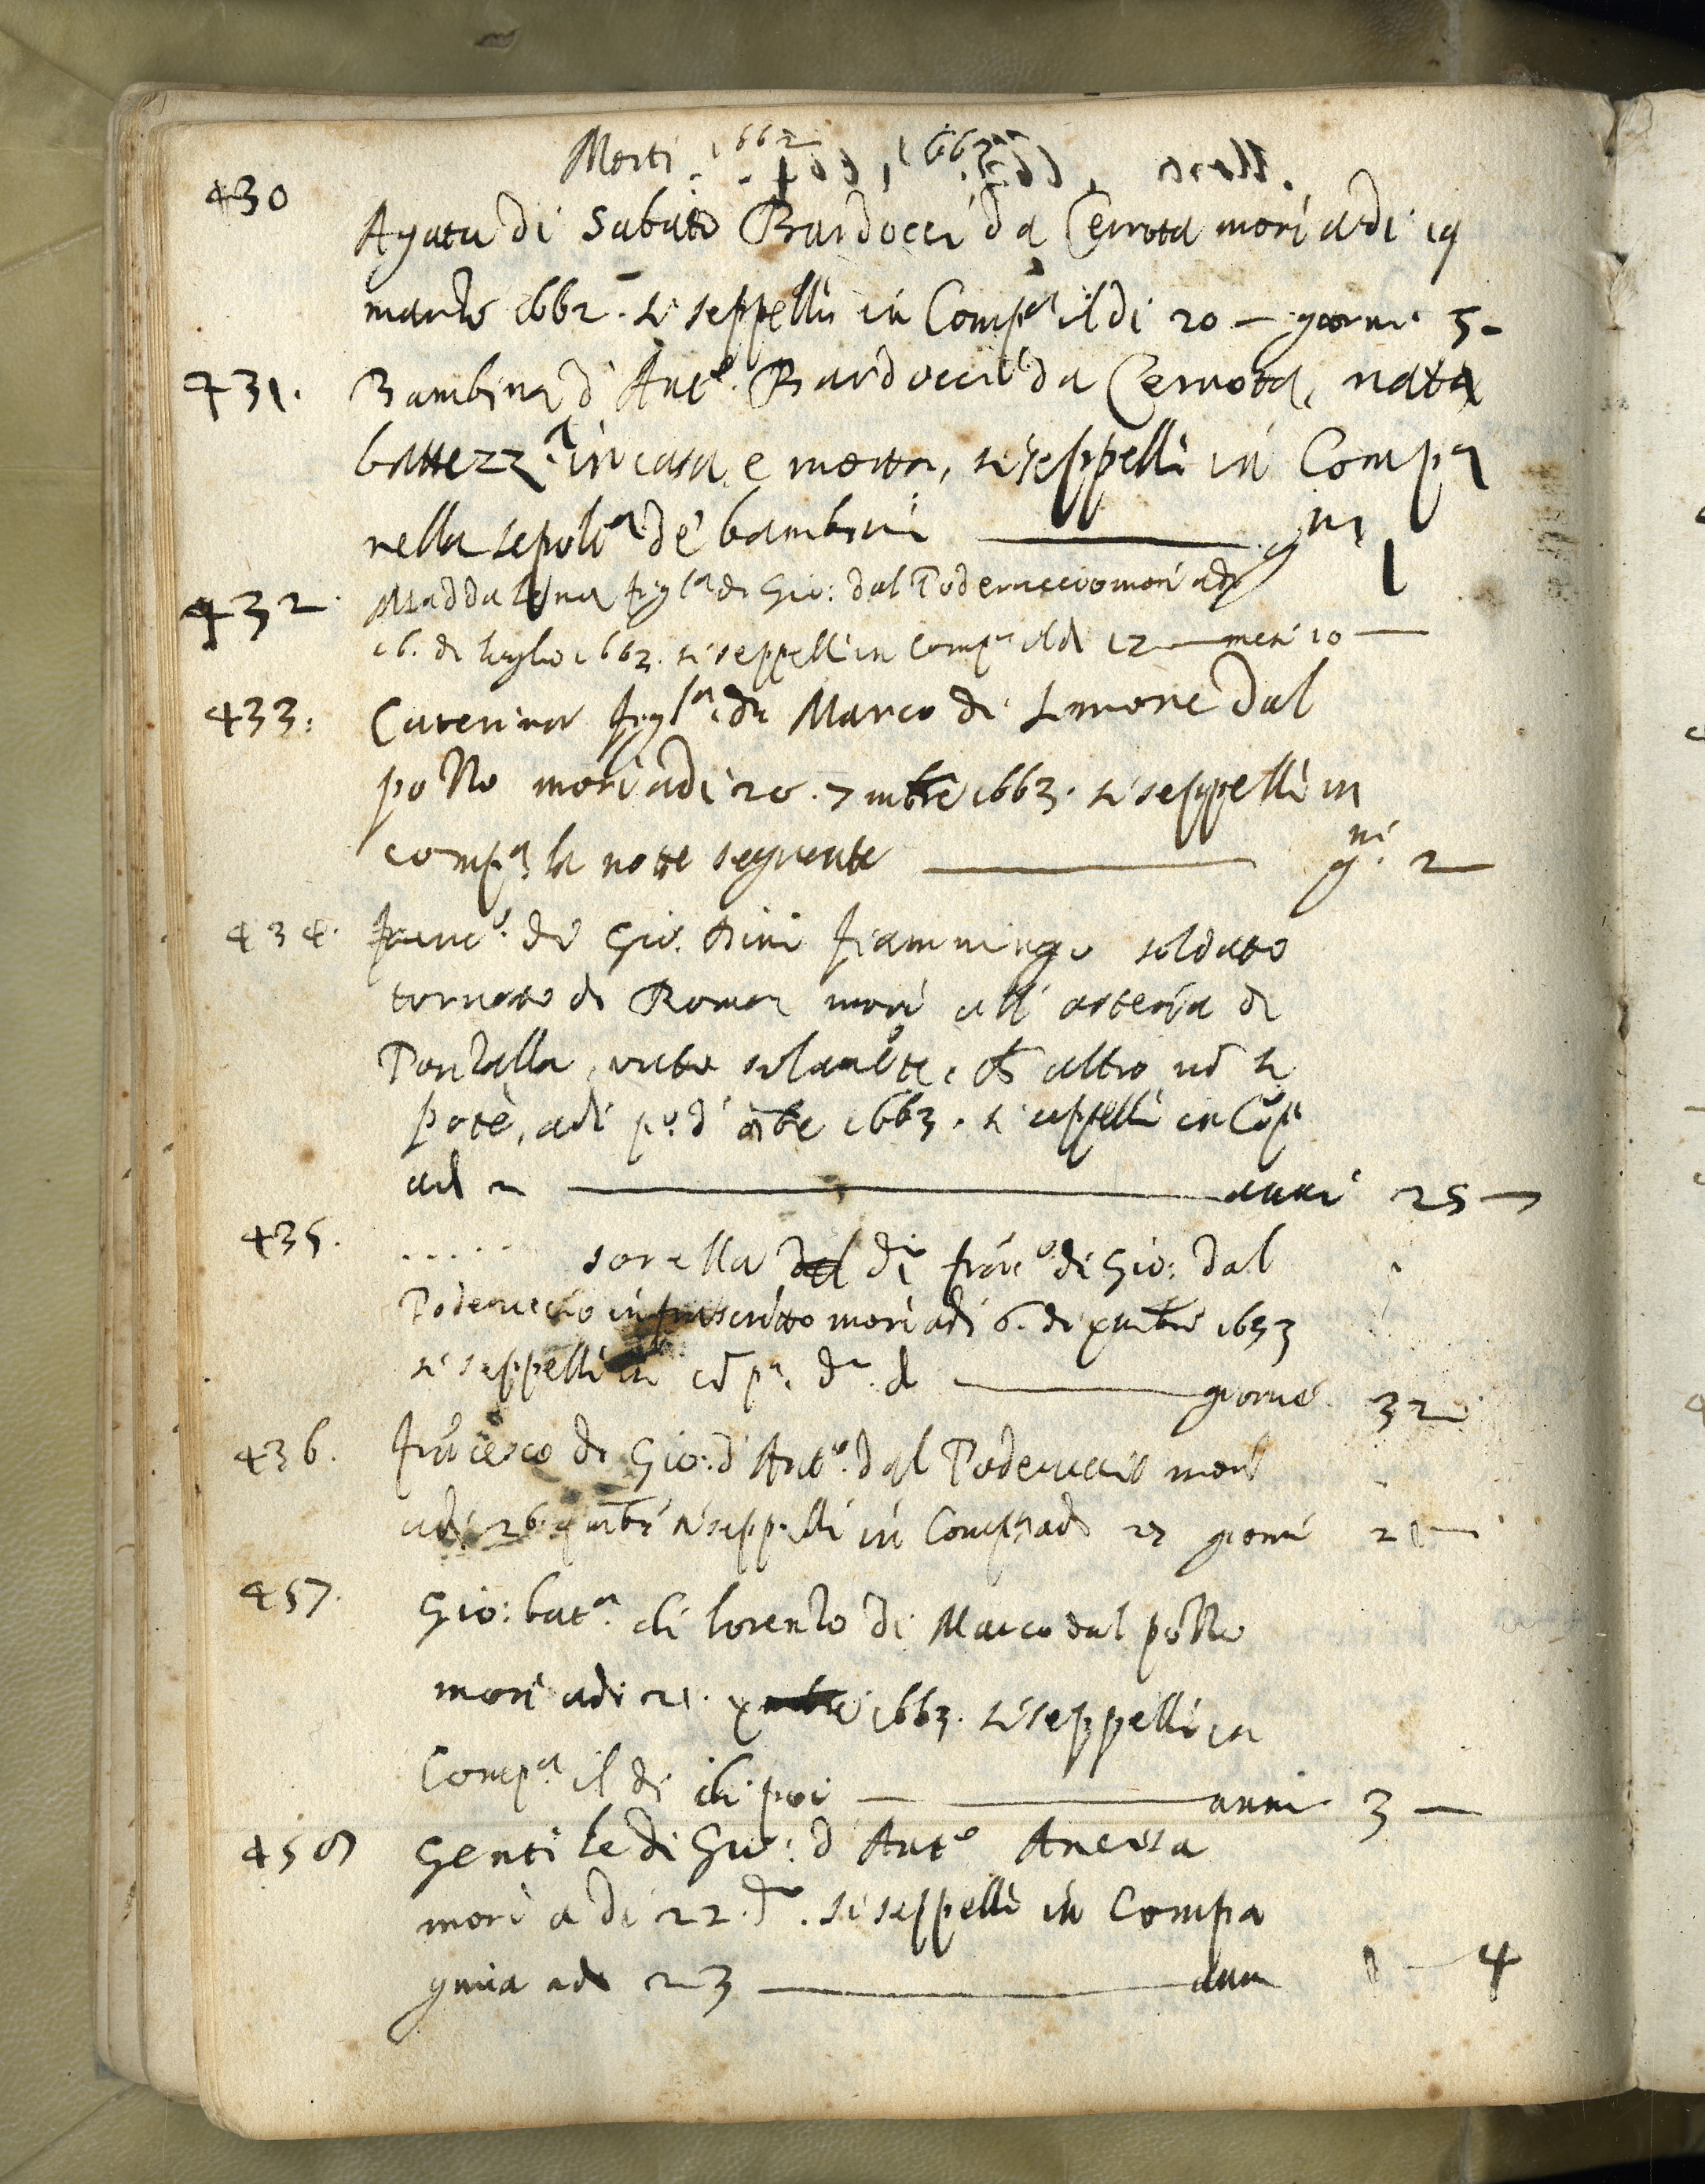 Morti 1662 1663
430 Agata di Sabato Bardocci da Cerrota morì adi 19
marzo 1662. si seppellì in Compª il di 20 — giorni 5 –
431. Bambina d' Antº. Bardocci da Cerrota, nata
battezzª. in casa, e morta, si seppellì in Compª
nella sepolª de' bambini ——— gni 1
432. Maddalena figlª di Gio: dal Poderuccio morì adi
16. di luglio 1663. si seppellì in Compª il di 17 — mesi 10 —
433: Caterina figlª di Marco di Simone dal
pozzo morì adi 20. 7mbre 1663. si seppellì in
compª la notte seguente ——— gni. 2 —
434. Francº. di Gio. fiammingo soldato
tornato di Roma morì all' osteria di
Pontalla, unto solamte, ch altro nō si
potè, adi pº. d' 1663. si seppellì in Cōpª
adi 2 ——— anni 25 —
435. ..... sorella del di francº di Gio: dal
Poderuccio infrascritto morì adi 6. di xmbre 1653
si seppellì in cōpª. dº. di ——— giorni 32
436. frācesco di Gio: d' Antº. dal Poderuccio morì
adi 26 si seppellì in Compª adi 27 giorni 21 —
457. Gio: batª. di lorenzo di Marco dal pozzo
morì adi 21. xmbre 1663. si seppellì in
Compª. il di di poi ——— anni 3 —
458 Gentile di Gio: d' Antº Anersa
morì a di 22. dº. si seppellì in Compa
gnia adi 23 ——— anni 4